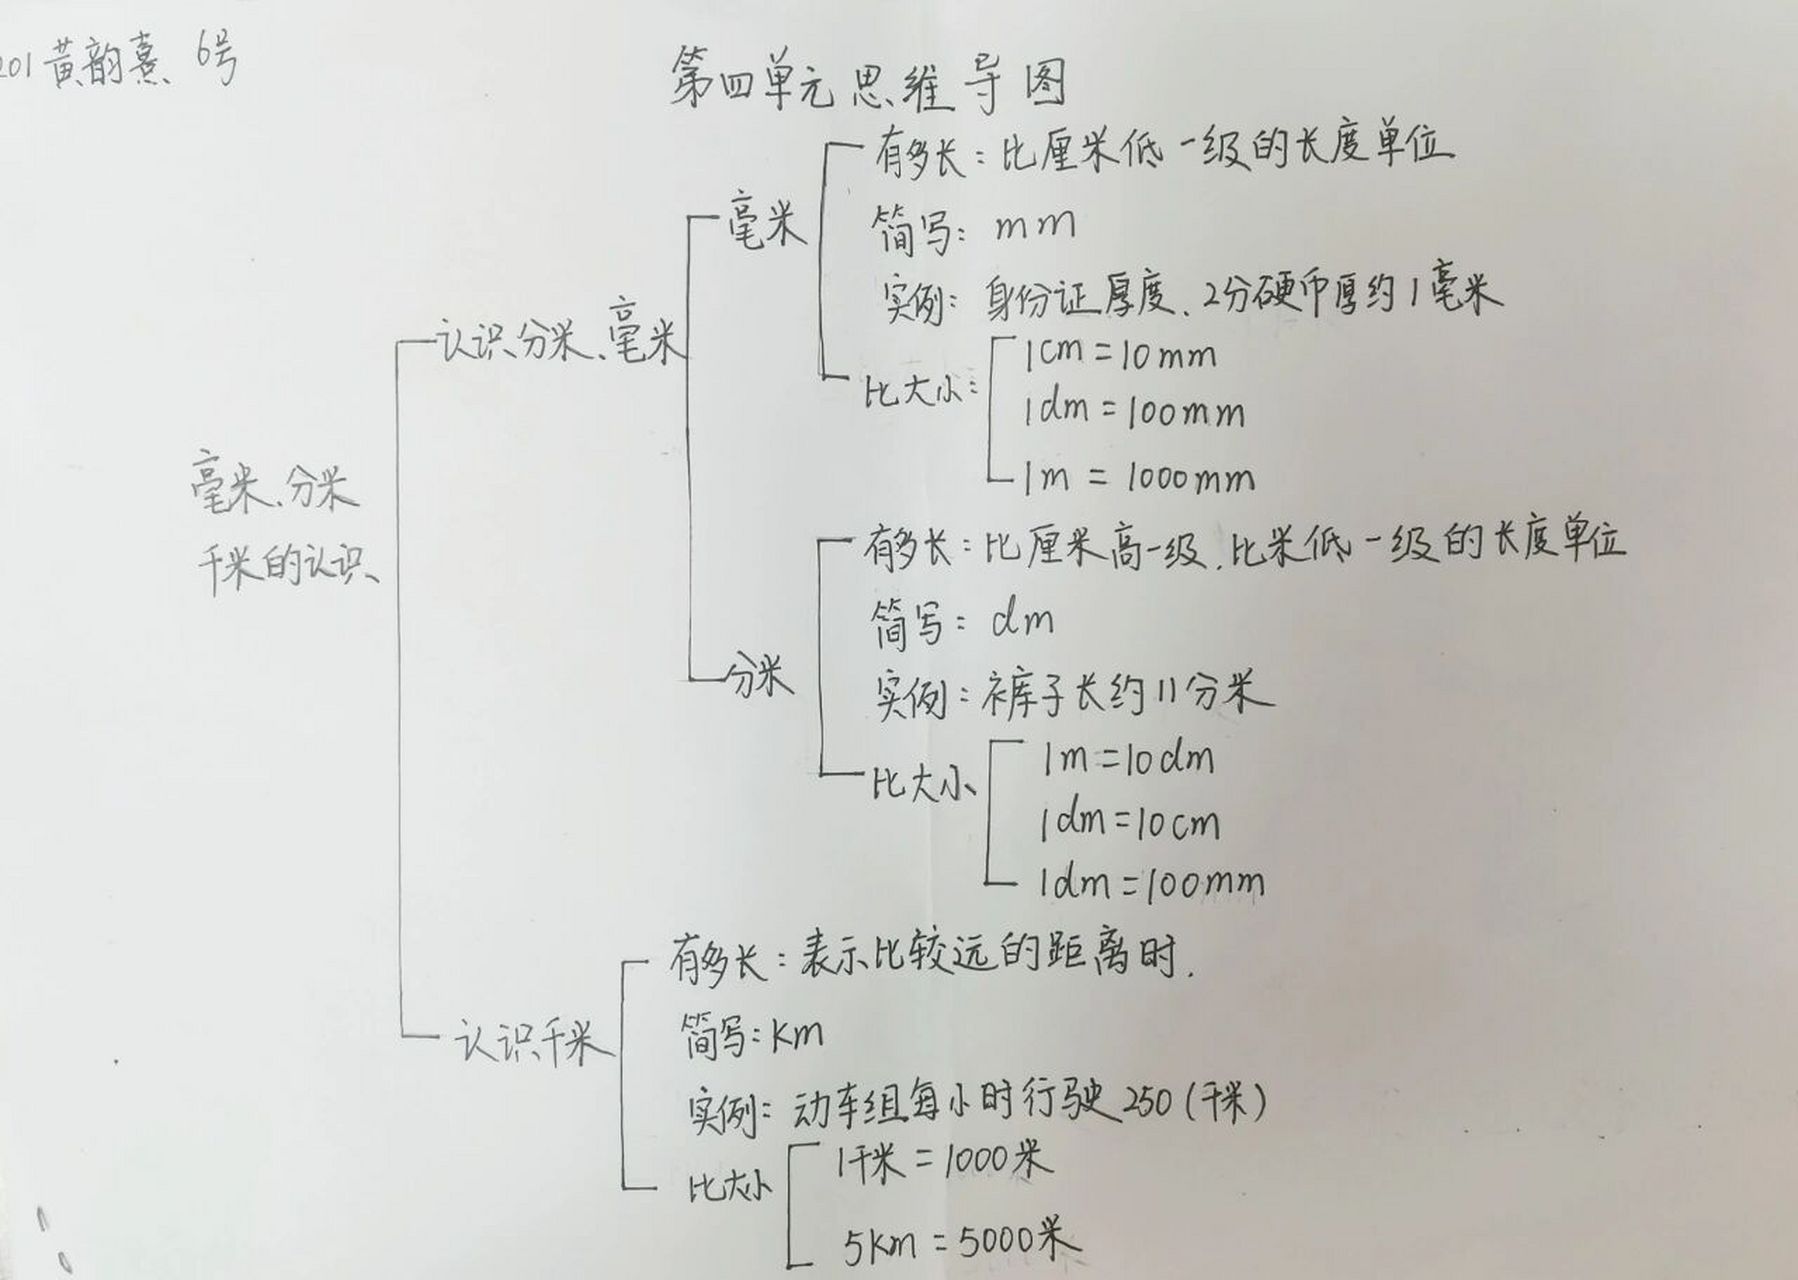 201黄韵熹 6号
第四单元思维导图
毫米、分米
千米的认识
认识分米、毫米
毫米
有多长：比厘米低一级的长度单位
简写：mm
实例：身份证厚度、2分硬币厚约1毫米
比大小：
1cm=10mm
1dm=100mm
1m=1000mm
分米
有多长：比厘米高一级、比米低一级的长度单位
简写：dm
实例：裤子长约11分米
比大小
1m=10dm
1dm=10cm
1dm=100mm
认识千米
有多长：表示比较远的距离时.
简写：km
实例：动车组每小时行驶250(千米)
比大小
1千米=1000米
5km=5000米